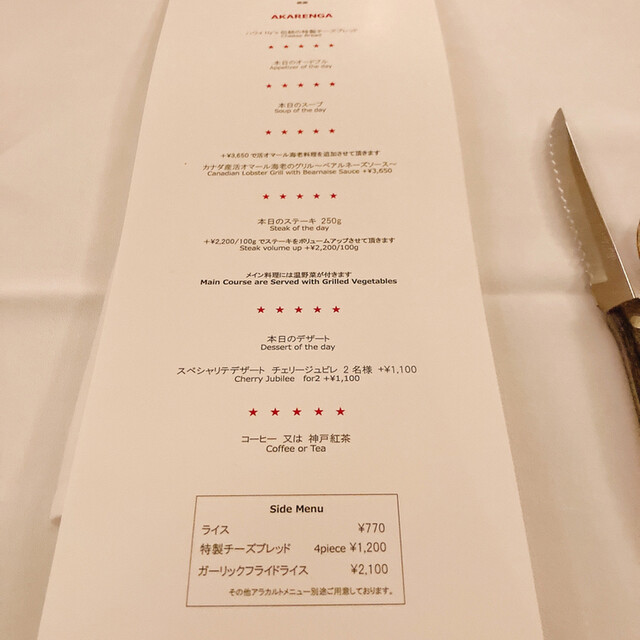 AKARENGA
伝統の特製チーズブレッド
Cheese Bread
★ ★ ★ ★ ★
本日のオードブル
Appetizer of the day
★ ★ ★ ★ ★
本日のスープ
Soup of the day
★ ★ ★ ★ ★
+¥3,650 で活オマール海老料理を追加させて頂きます
カナダ産活オマール海老のグリル～ベアルネーズソース～
Canadian Lobster Grill with Bearnaise Sauce +¥3,650
★ ★ ★ ★ ★
本日のステーキ 250g
Steak of the day
+¥2,200/100g でステーキをボリュームアップさせて頂きます
Steak volume up +¥2,200/100g
メイン料理には温野菜が付きます
Main Course are Served with Grilled Vegetables
★ ★ ★ ★ ★
本日のデザート
Dessert of the day
スペシャリテデザート チェリージュビレ 2 名様 +¥1,100
Cherry Jubilee for2 +¥1,100
★ ★ ★ ★ ★
コーヒー 又は 神戸紅茶
Coffee or Tea
Side Menu
ライス ¥770
特製チーズブレッド 4piece ¥1,200
ガーリックフライドライス ¥2,100
その他アラカルトメニュー別途ご用意しております。